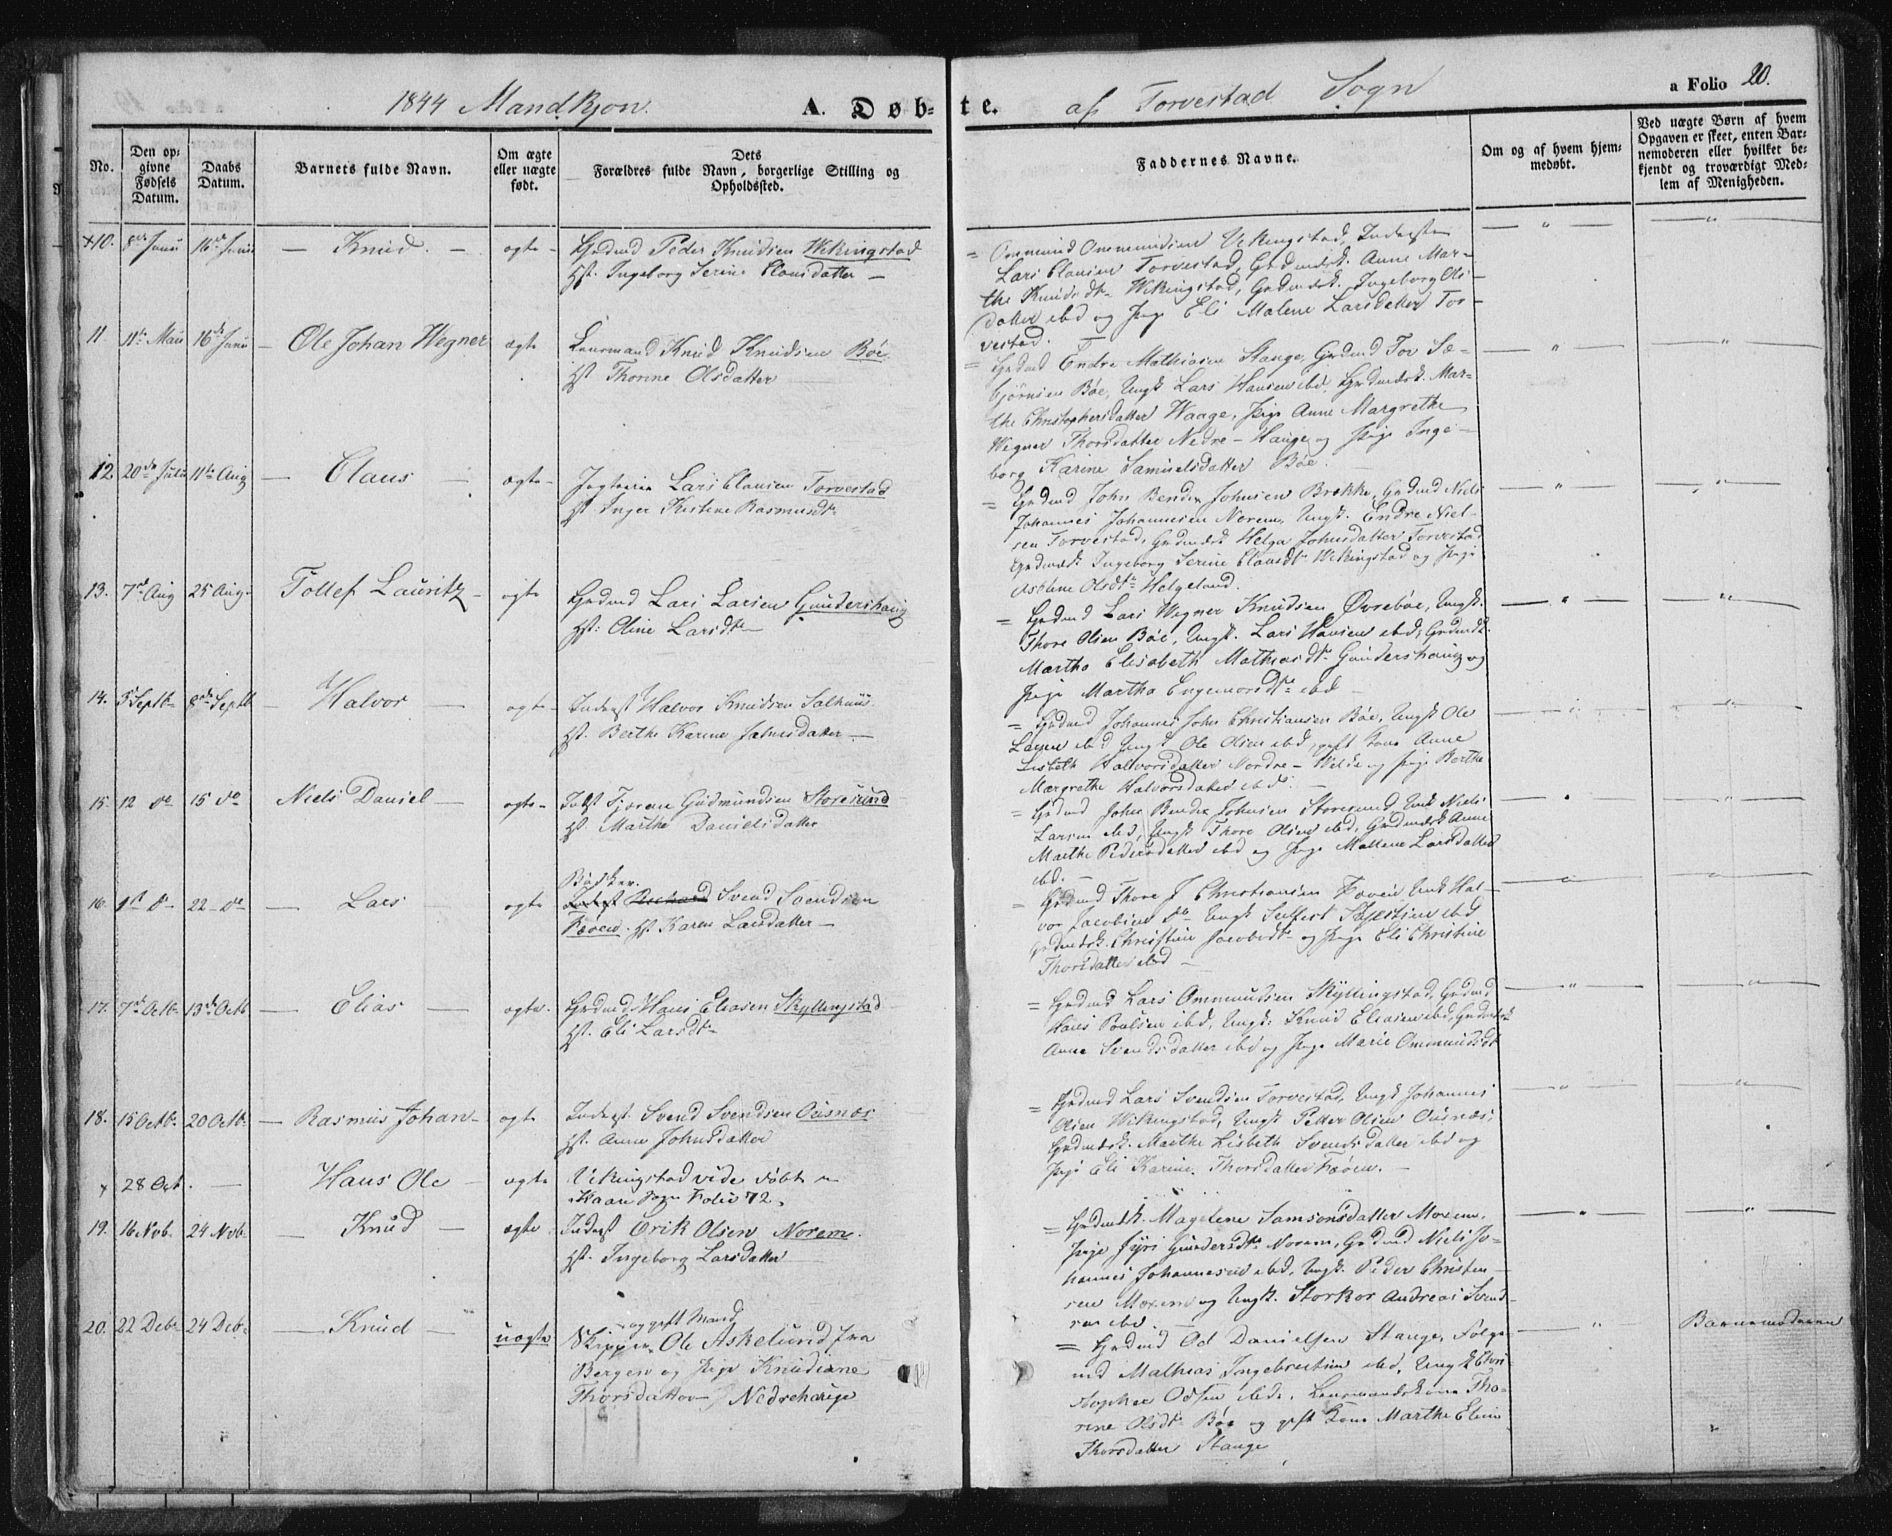 1844 Mandkjøn. A. Døb-
te. af Torvestad Sogn a Folio 20.
No.
Den op-
givne
Fødsels
Datum.
Daabs
Datum.
Barnets fulde Navn.
Om ægte
eller uægte
født.
Dets
Forældres fulde Navn, borgerlige Stilling og
Opholdssted.
Faddernes Navne.
Om og af hvem hjem-
medøbt.
Ved uægte Børn af hvem
Opgaven er skeet, enten Bar-
nemoderen eller hvilket be-
kjendt og troværdigt Med-
lem af Menigheden.
+10. Junii 16de Junii — Knud. — ægte Grdmd Peder Knudsen Wikingstad
Hst. Ingeborg Serine Clausdatter —
= Ommund Ommundsen Vikingstad, Inderste
Lars Clausen Torvestad, Grdmdsk. Anne Mar-
the Knudsdtr Wikingstad, Grdmdsk. Ingeborg Ols-
datter ibd og Pige Eli Malene Larsdatter Tor-
vestad.
11. 11te Maii 16de Junii — Ole Johan Wegner ægte Lensmand Knud Knudsen Bøe
Hst. Thorine Olsdatter
= Grdmd Endre Mathiasen Stange, Grdmd Tov Sæ-
bjørnsen Bøe, Ungk. Lars Hansen ibd, Grdmdsk. Mar-
the Christophersdatter Waage, Pige Anne Margrethe
Wegner Thorsdatter Nedre-Hauge og Pige Inge-
borg Karine Samuelsdatter Bøe.
12. 20de Julii 11te Aug — Claus — ægte Lars Clausen Torvestad
Hst Inger Kistine Rasmusdtr
= Grdmd John Bendix Johnsen Brekke, Grdmd Niels
Johannes Johannesen Norem, Ungk. Endre Niel-
sen Torvestad, Grdmdsk Helga Johnsdatter Torvestad
Grdmdsk Ingeborg Serine Clausdtr Wikingstad og Pige
Olsdtr Helgeland.
13. 7de Aug 25 Aug. Tollef Lauritz — ægte Grdmd Lars Larsen Gundershaug
Hst: Oline Larsdtr
= Grdmd Lars Wegner Knudsen Øvrebøe, Ungk.
Thore Olsen Bøe, Ungk. Lars Hansen ibd, Grdmdsk.
Martha Elisabeth Mathiasdtr Gundershaug og
Pige Martha Engemorsdtr ibd —
14. 5 Septb 8de Septb — Halvor — ægte Inderst Halvor Knudsen Salhuus
Hst. Berthe Karine Johnsdatter. —
= Grdmd Johannes John Christiansen Bøe, Ungk Ole
Larsen ibd Ungk Ole Olsen ibd, gift Kone Anne
Lisbeth Halvorsdatter Nordre-Velde og Pige Berthe
Margrethe Halvorsdatter ibd.
15. 12 do 15 do Niels Daniel — ægte Indst Tjøran Gudmundsen Storesund
Hst. Marthe Danielsdatter
= Grdmd John Bendix Johnsen Storesund, Ungk Niels
Larsen ibd, Ungk Thore Olsen ibd, Grdmdsk Anne
Marthe Pedersdatter ibd og Pige Mallene Larsdatter
ibd.
16. 1st do 22 do — Lars — ægte Bødker.
Inderst Svend Svendsen
Fæøen. Hst Karen Larsdatter —
= Grdmd Thore J Christiansen Fæøen Ungk Hal-
vor Jacobsen do Ungk ibd
Grdmdsk. Christine Jacobsdtr og Pige Eli Christine
Thorsdatter ibd —
17. 7de Octb. 13de Octb — Elias — ægte. Grdmd Hans Eliasen Skyllingstad
Hst. Eli Larsdtr
= Grdmd Lars Ommundsen Skyllingstad, Grdmd
Hans Poulsen ibd, Ungk: Knud Eliasen ibd, Grdmdsk
Anne Svendsdatter ibd og Pige Marie Ommundsdtr
18. 15 Octb. 20 Octb. — Rasmus Johan — ægte Inderst. Svend Svendsen Ousnæs
Hst. Anne Johnsdatter
= Grdmd Lars Svendsen Torvestad, Ungk Johannes
Olsen Wikingstad, Ungk Petter Olsen Ousnæs,
Grdmdsk. Marthe Lisbeth Svendsdatter ibd og
Pige Eli Karine Thorsdatter Fæøen. —
+ 28 Oct. — Hans Ole — ægte Vikingstad vide døbte
Sogn Folio 72.
19. 16 Nvb. 24 Nvb. — Knud — ægte Inderst Erik Olsen Norem.
Hst. Ingeborg Larsdatter
= Grdmdsk. Magelene Samsonsdatter Moxem,
Pige Gundersdtr Norem, Grdmd Niels Jo-
hannes Johannesen ibd, Ungk. Peder Christen-
sen og Ungk. Storkor Andreas Svend-
sen ibd
20. 22 Debr 24 Debr — Knud — uægte Skipper og gift Mand Ole Askelund fra
Bergen og Pige Knudiane
Thorsdatter Nedrehauge
= Grdmd Od Danielsen Stange, Folge-
md Mathias Ingebretsen ibd, Ungk Chri-
stopher Odsen ibd, Lensmandskone Tho-
rine Olsdtr Bøe og gift Kone Marthe Elene
Thorsdatter Stange
Barnemoderen